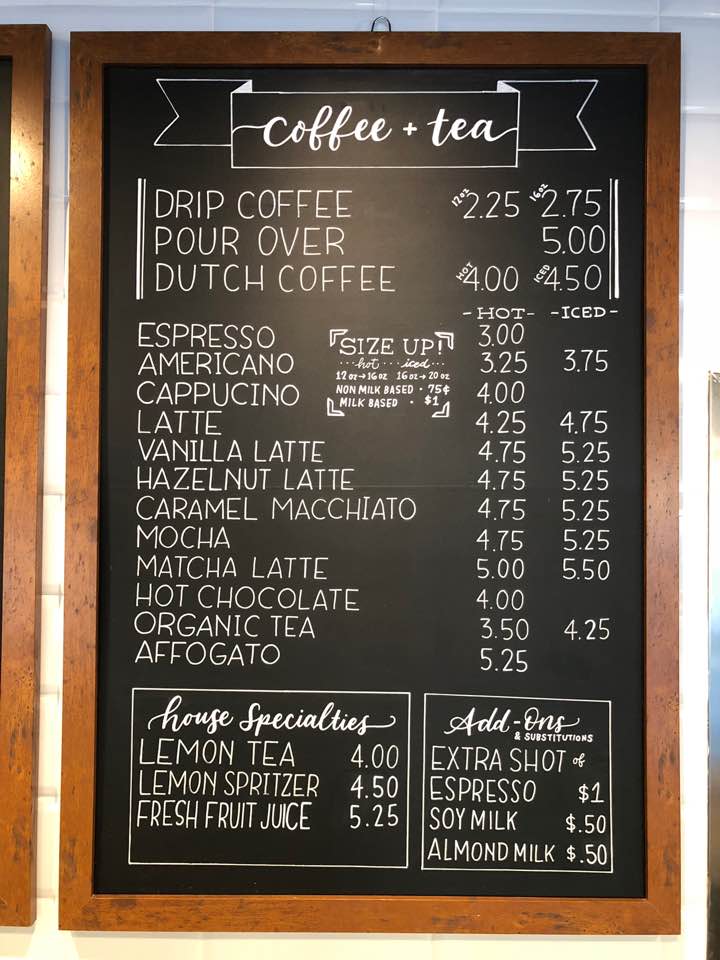 coffee + tea
DRIP COFFEE 12oz 2.25 16oz 2.75
POUR OVER 5.00
DUTCH COFFEE HOT 4.00 ICED 4.50
- HOT - - ICED -
ESPRESSO 3.00
AMERICANO 3.25 3.75
CAPPUCINO 4.00
LATTE 4.25 4.75
VANILLA LATTE 4.75 5.25
HAZELNUT LATTE 4.75 5.25
CARAMEL MACCHIATO 4.75 5.25
MOCHA 4.75 5.25
MATCHA LATTE 5.00 5.50
HOT CHOCOLATE 4.00
ORGANIC TEA 3.50 4.25
AFFOGATO 5.25
SIZE UP!
...hot...iced...
12 oz→16 oz 16 oz→20 oz
NON MILK BASED · 75¢
MILK BASED · $1
house Specialties
LEMON TEA 4.00
LEMON SPRITZER 4.50
FRESH FRUIT JUICE 5.25
Add-Ons
& SUBSTITUTIONS
EXTRA SHOT of
ESPRESSO $1
SOY MILK $.50
ALMOND MILK $.50